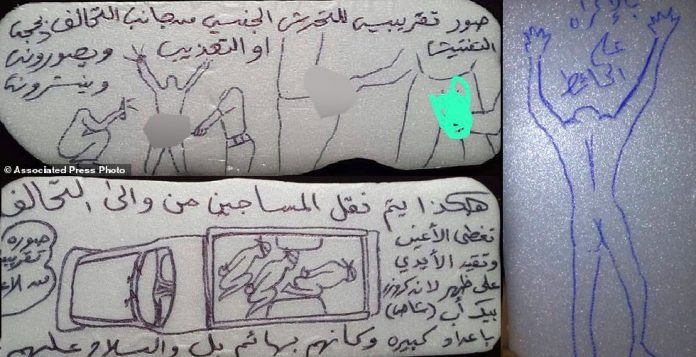 صور تقريبيه للتحرش الجنسي من جانب التحالف بحجة
التفتيش
او التعذيب
ويصورونها
وينشرونها
© Associated Press Photo
هكذا يتم نقل المساجين من والى التحالف
تغطى الأعين
وتقيد الأيدي
على ظهر لاندكروزر
بيك أب (عاص)
صوره
تقريبيه
باعداد كبيره وكأنهم بهائم بل والسلاح عليهم
على
الحائط